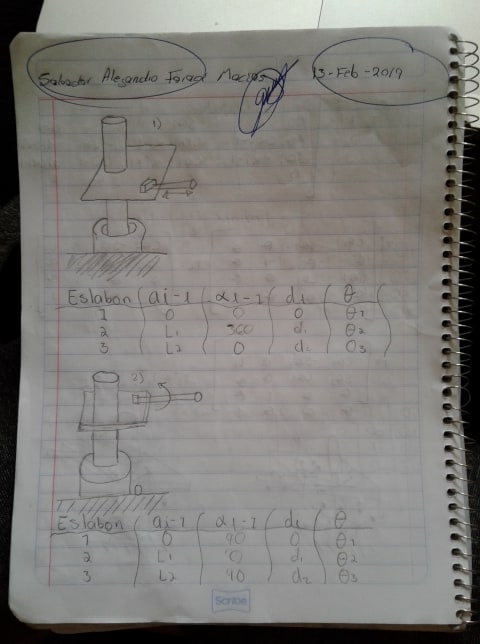 Salvador Alejandro Macías 13-Feb-2019
1)
Eslabon ai-1 αi-1 di θ
1 0 0 0 θ1
2 L1 360 d1 θ2
3 L2 0 d2 θ3
2)
Eslabon ai-1 αi-1 di θ
1 0 90 0 θ1
2 L1 0 d1 θ2
3 L2 90 d2 θ3
Scribe